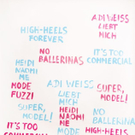 ADI WEISS
LIEBT
MICH
HIGH-HEELS
FOREVER
NO
BALLERINAS
IT'S TOO
COMMERCIAL
HEIDI
NAOMI
ME
ADI WEISS
LIEBT
MICH
SUPER,
MODEL!
MODE
FUZZI
SUPER,
MODEL!
HEIDI
NAOMI
ME
HIGH-HEELS
FOREVER
IT'S TOO
MODE